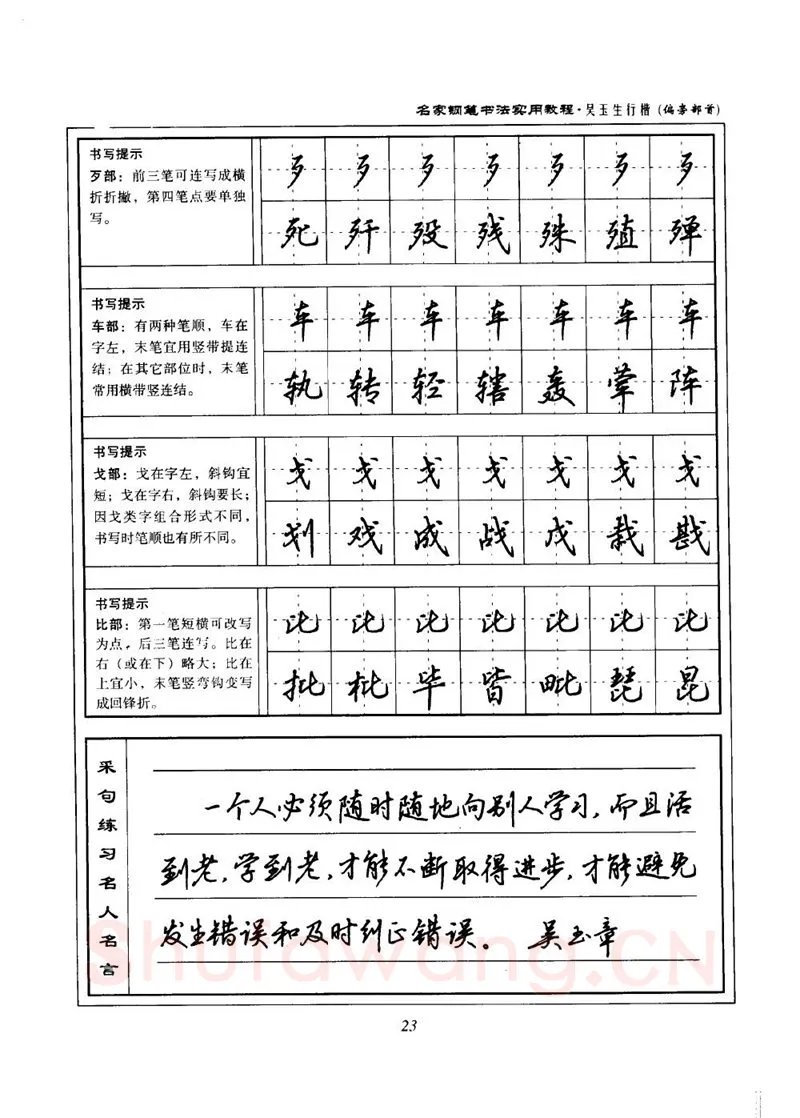 名家钢笔书法实用教程·吴玉生行楷(偏旁部首)
书写提示
歹部：前三笔可连写成横
折折撇，第四笔点要单独
写。
歹 歹 歹 歹 歹 歹 歹
死 歼 殁 残 殊 殖 殚
书写提示
车部：有两种笔顺，车在
字左，末笔宜用竖带提连
结；在其它部位时，末笔
常用横带竖连结。
车 车 车 车 车 车 车
轨 转 轻 辖 轰 荤 阵
书写提示
戈部：戈在字左，斜钩宜
短；戈在字右，斜钩要长；
因戈类字组合形式不同，
书写时笔顺也有所不同。
戈 戈 戈 戈 戈 戈 戈
划 戏 成 战 戊 裁 戡
书写提示
比部：第一笔短横可改写
为点，后三笔连写。比在
右（或在下）略大；比在
上宜小，末笔竖弯钩变写
成回锋折。
比 比 比 比 比 比 比
批 枇 毕 皆 毗 琵 昆
采句练习名人名言
一个人必须随时随地向别人学习，而且活
到老，学到老，才能不断取得进步，才能避免
发生错误和及时纠正错误。 吴玉章
Shufawang.CN
23